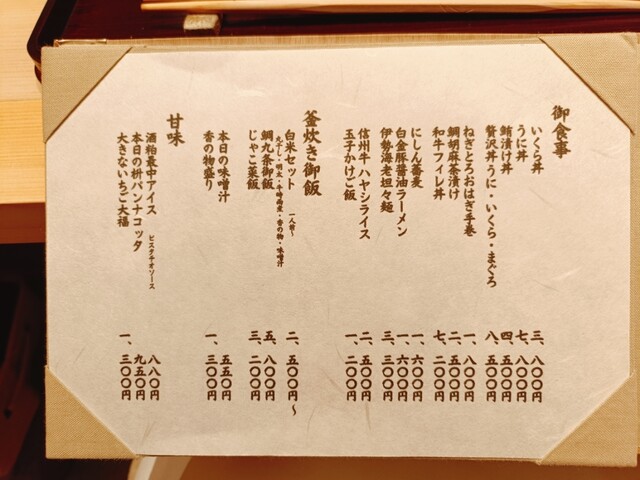 御食事
いくら丼 三、八〇〇円
うに丼 七、八〇〇円
鮪漬け丼 四、五〇〇円
贅沢丼うに・いくら・まぐろ 八、五〇〇円
ねぎとろおはぎ手巻 一、八〇〇円
鯛胡麻茶漬け 二、五〇〇円
和牛フィレ丼 七、二〇〇円
にしん蕎麦 一、六〇〇円
白金豚醤油ラーメン 一、六〇〇円
伊勢海老坦々麺 三、三〇〇円
信州牛ハヤシライス 二、五〇〇円
玉子かけご飯 一、二〇〇円
釜炊き御飯
白米セット 一人前〜 二、五〇〇円〜
丸干し・明太・香の物・味噌汁
鯛九条御飯 五、八〇〇円
じゃこ菜飯 三、二〇〇円
本日の味噌汁 五五〇円
香の物盛り 一、三〇〇円
甘味
酒粕最中アイス ピスタチオソース 八八〇円
本日の枡パンナコッタ 九五〇円
大きないちご大福 一、三〇〇円